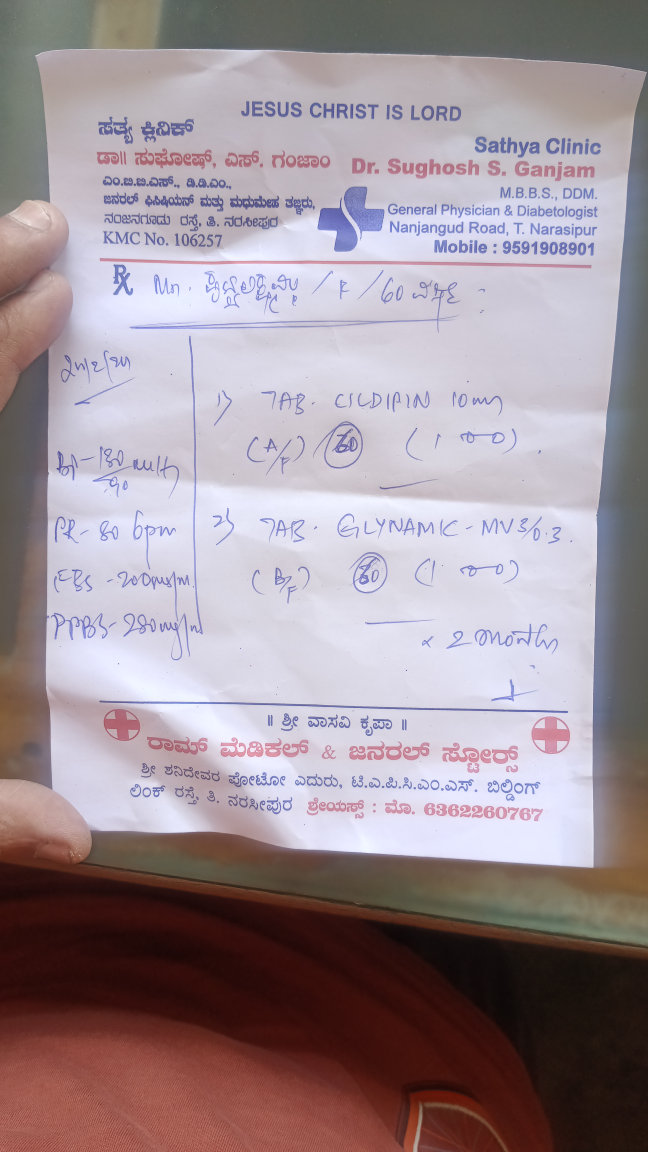 JESUS CHRIST IS LORD
ಸತ್ಯ ಕ್ಲಿನಿಕ್
ಡಾ|| ಸುಘೋಷ್, ಎಸ್. ಗಂಜಾಂ
ಎಂ.ಬಿ.ಬಿ.ಎಸ್., ಡಿ.ಡಿ.ಎಂ.,
ಜನರಲ್ ಫಿಸಿಷಿಯನ್ ಮತ್ತು ಮಧುಮೇಹ ತಜ್ಞರು,
ನಂಜನಗೂಡು ರಸ್ತೆ, ತಿ. ನರಸೀಪುರ
KMC No. 106257
Sathya Clinic
Dr. Sughosh S. Ganjam
M.B.B.S., DDM.
General Physician & Diabetologist
Nanjangud Road, T. Narasipur
Mobile : 9591908901
℞ / F / 60
BP - 180/90
PR - 80 bpm
FBS - 200
PPBS - 280
1) TAB. CILDIPIN 10mg
(A/F) (1 0 0)
2) TAB. GLYNAMIC - MV 3/0.3
(B/F) (1 0 0)
x 2
|| ಶ್ರೀ ವಾಸವಿ ಕೃಪಾ ||
ರಾಮ್ ಮೆಡಿಕಲ್ & ಜನರಲ್ ಸ್ಟೋರ್ಸ್
ಶ್ರೀ ಶನಿದೇವರ ಫೋಟೋ ಎದುರು, ಟಿ.ಎ.ಪಿ.ಸಿ.ಎಂ.ಎಸ್. ಬಿಲ್ಡಿಂಗ್
ಲಿಂಕ್ ರಸ್ತೆ, ತಿ. ನರಸೀಪುರ ಶ್ರೇಯಸ್ಸ್ : ಮೊ. 6362260767